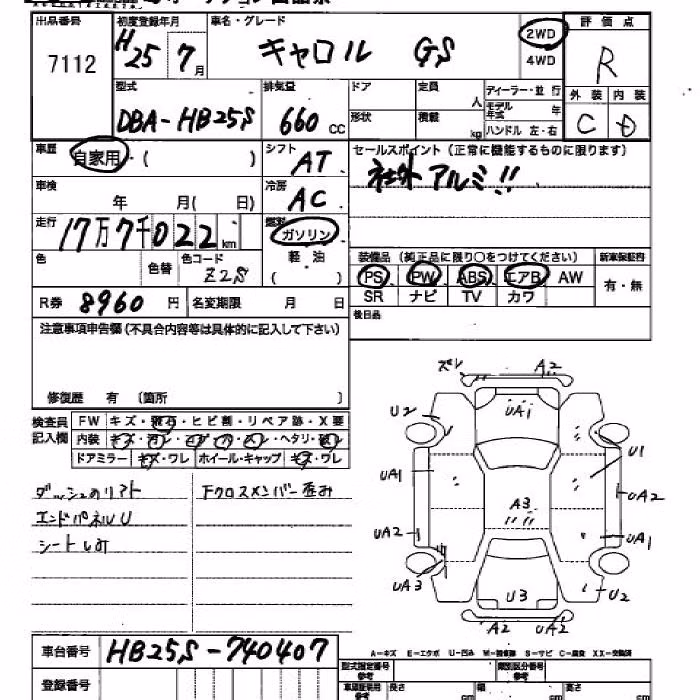 出品番号 7112
初度登録年月 H25 7月
車名・グレード キャロル GS
2WD 4WD
評価点 R
外装 C 内装 D
型式 DBA-HB25S
排気量 660 cc
ドア 定員 人
形状 積載 kg
ディーラー・並行
モデル年式 年
ハンドル 左・右
車歴 自家用・( )
シフト AT
セールスポイント(正常に機能するものに限ります)
社外アルミ!!
車検 年 月( 日)
冷房 AC
走行 17万7千022km
燃料 ガソリン 軽油 ( )
色 色替 色コード Z2S
装備品(純正品に限り○をつけてください) 新車保証書
PS PW ABS エアB AW 有・無
SR ナビ TV カワ
R券 8960円 名変期限 月 日
後日品
注意事項申告欄(不具合内容等は具体的に記入して下さい)
修復歴 有 〔箇所 〕
検査員記入欄
FW キズ・飛石・ヒビ割・リペア跡・X要
内装 キズ・汚レ・コゲ・穴・スレ・ヘタリ・破レ
ドアミラー キズ・ワレ ホイール・キャップ キズ・ワレ
ダッシュのリアト
エンドパネルU
シートしみ
下クロスメンバー歪み
ズレ A2
U2 UA1
U1
UA1 UA2
A3
UA2 UA1
UA3 U3 U2
A2 UA2
車台番号 HB25S-740407
登録番号
A-キズ E-エクボ U-凹み W-補修跡 S-サビ C-腐食 XX-交換済
型式指定番号 参考 類別区分番号 参考
車庫証明用 参考 長さ cm 幅 cm 高さ cm